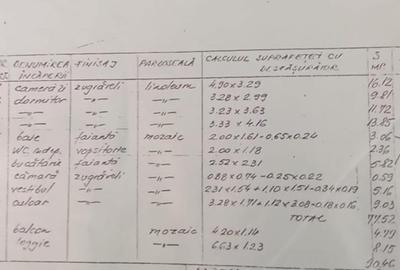 DENUMIREA ÎNCĂPERII FINISAJ PARDOSEALĂ CALCULUL SUPRAFEȚEI CU DESFĂȘURĂTOR S MP
camera zi zugrăveli linoleum 4.90 x 3.29 16.12
dormitor -"- -"- 3.28 x 2.99 9.81
-"- -"- -"- 3.23 x 3.63 11.72
-"- -"- -"- 3.33 x 4.16 13.85
baie faianță mozaic 2.00 x 1.61 - 0.65 x 0.24 3.06
WC indep. vopsitorie -"- 2.00 x 1.18 2.36
bucătărie faianță -"- 2.52 x 2.31 5.82
cămară zugrăveli -"- 0.88 x 0.74 - 0.25 x 0.22 0.59
vestibul -"- -"- 2.31 x 1.54 + 1.10 x 1.51 - 0.34 x 0.19 5.16
-"- -"- 3.28 x 1.71 + 1.12 x 3.08 - 0.18 x 0.16 9.03
TOTAL 77.52
balcon mozaic 4.20 x 1.14 4.79
loggie -"- 6.63 x 1.23 8.15
90.46